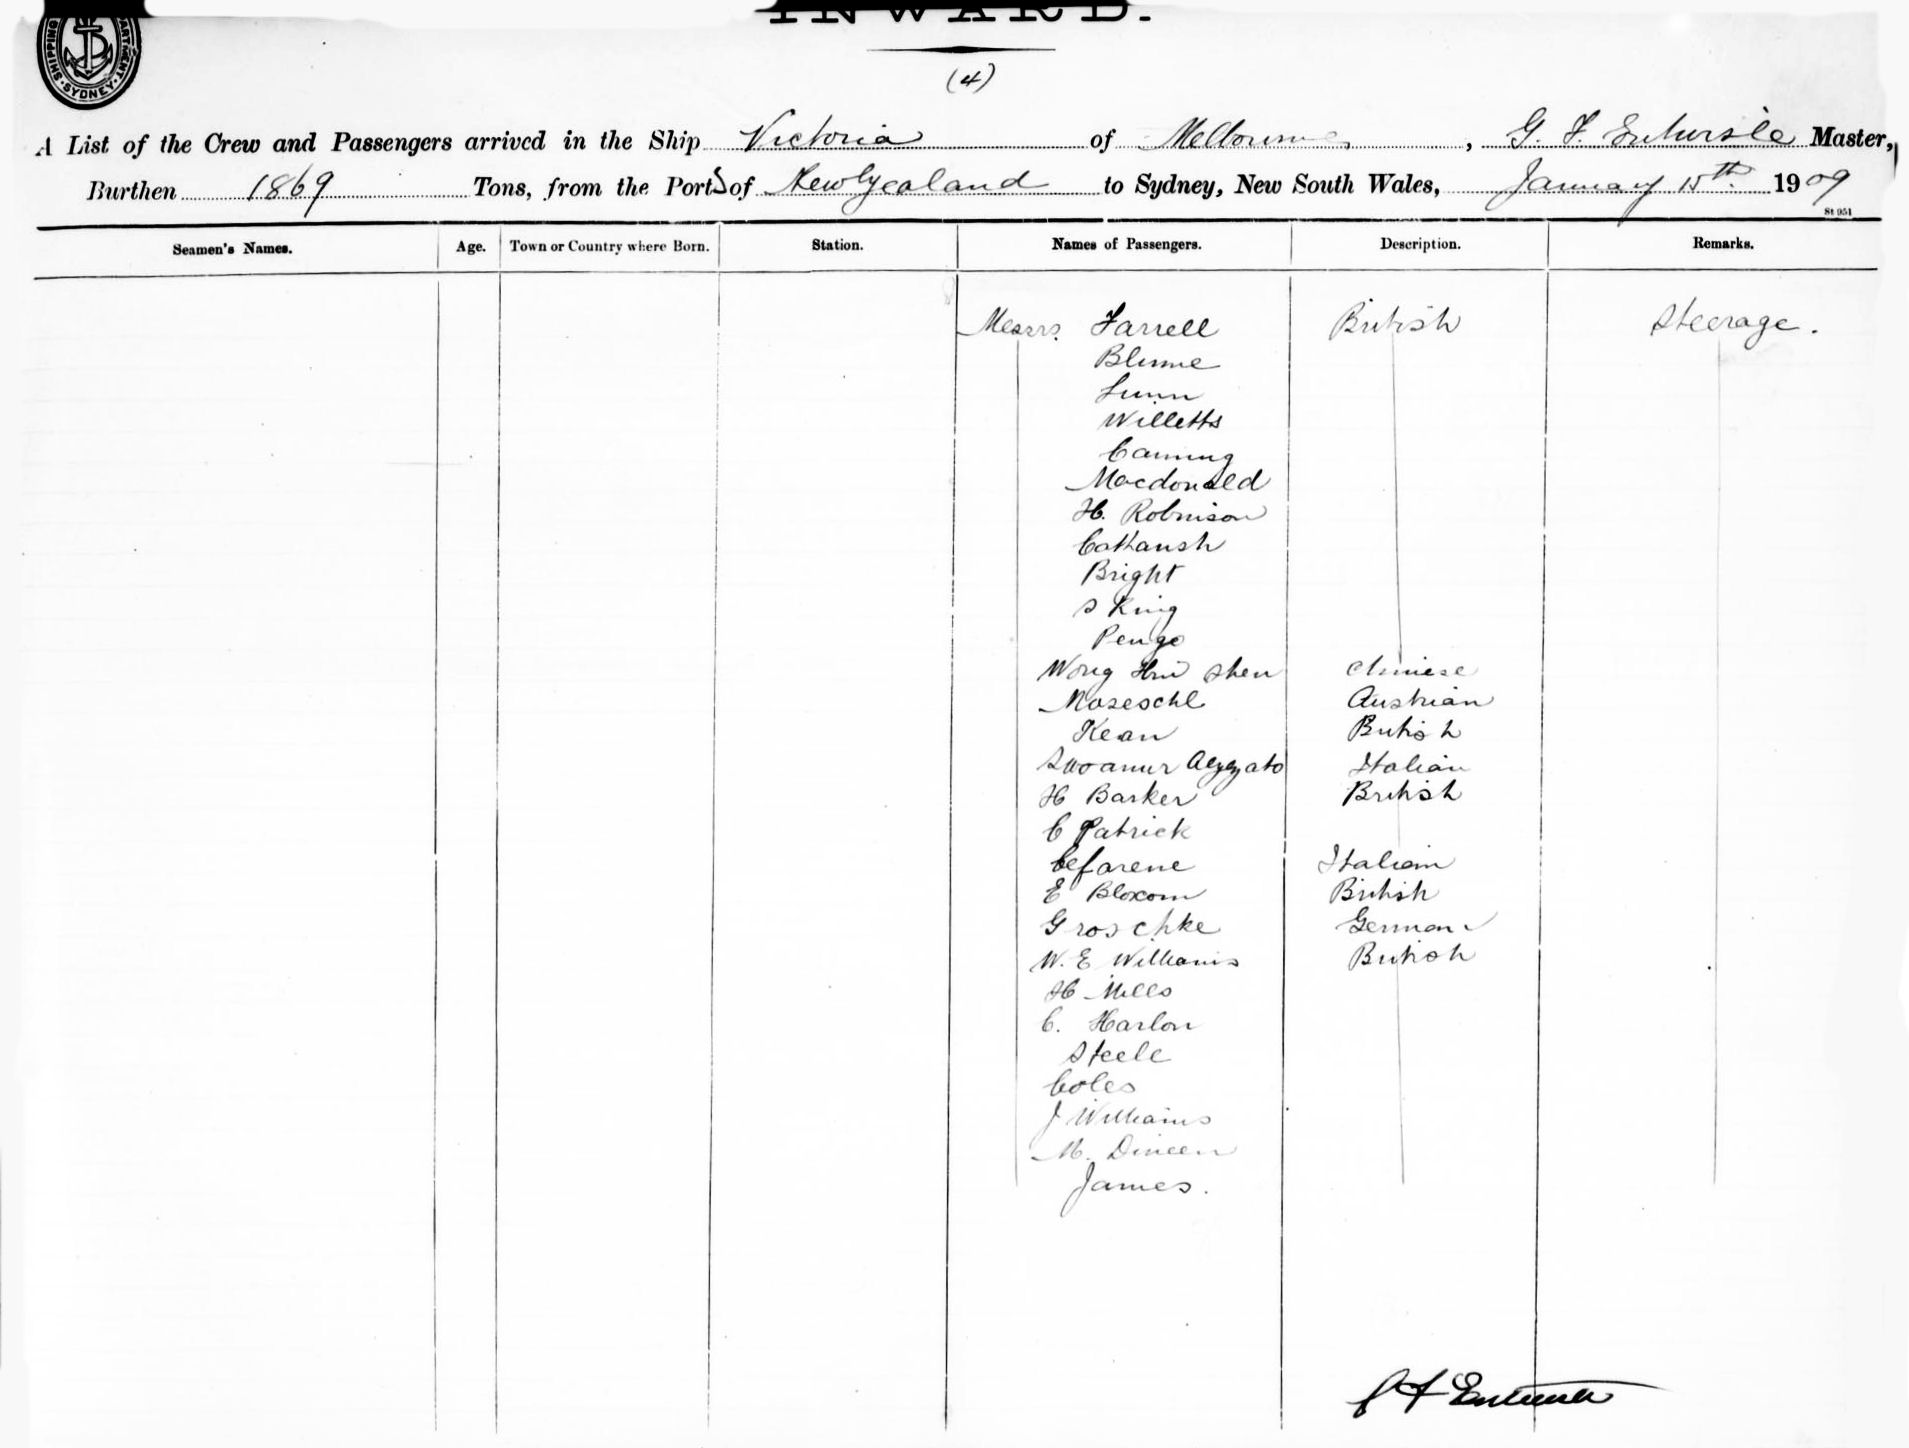 INWARD.
SHIPPING
SYDNEY
(4)
A List of the Crew and Passengers arrived in the Ship Victoria of Melbourne, G. F. Entwisle Master,
Burthen 1869 Tons, from the Ports of New Zealand to Sydney, New South Wales, January 15th 1909
St 951
Seamen's Names. Age. Town or Country where Born. Station. Names of Passengers. Description. Remarks.
Messrs. Farrell British Steerage.
Blume
Lunn
Willetts
Canning
Macdonald
H. Robinson
Bright
S King
Penge
Wong Shen Chinese
Moseschl Austrian
Kean British
Italian
H Barker British
C Patrick
Cefarene Italian
E Bloxom British
Groschke German
W. E Williams British
H Mills
C. Harlon
Steele
Coles
J Williams
M. Dineen
James.